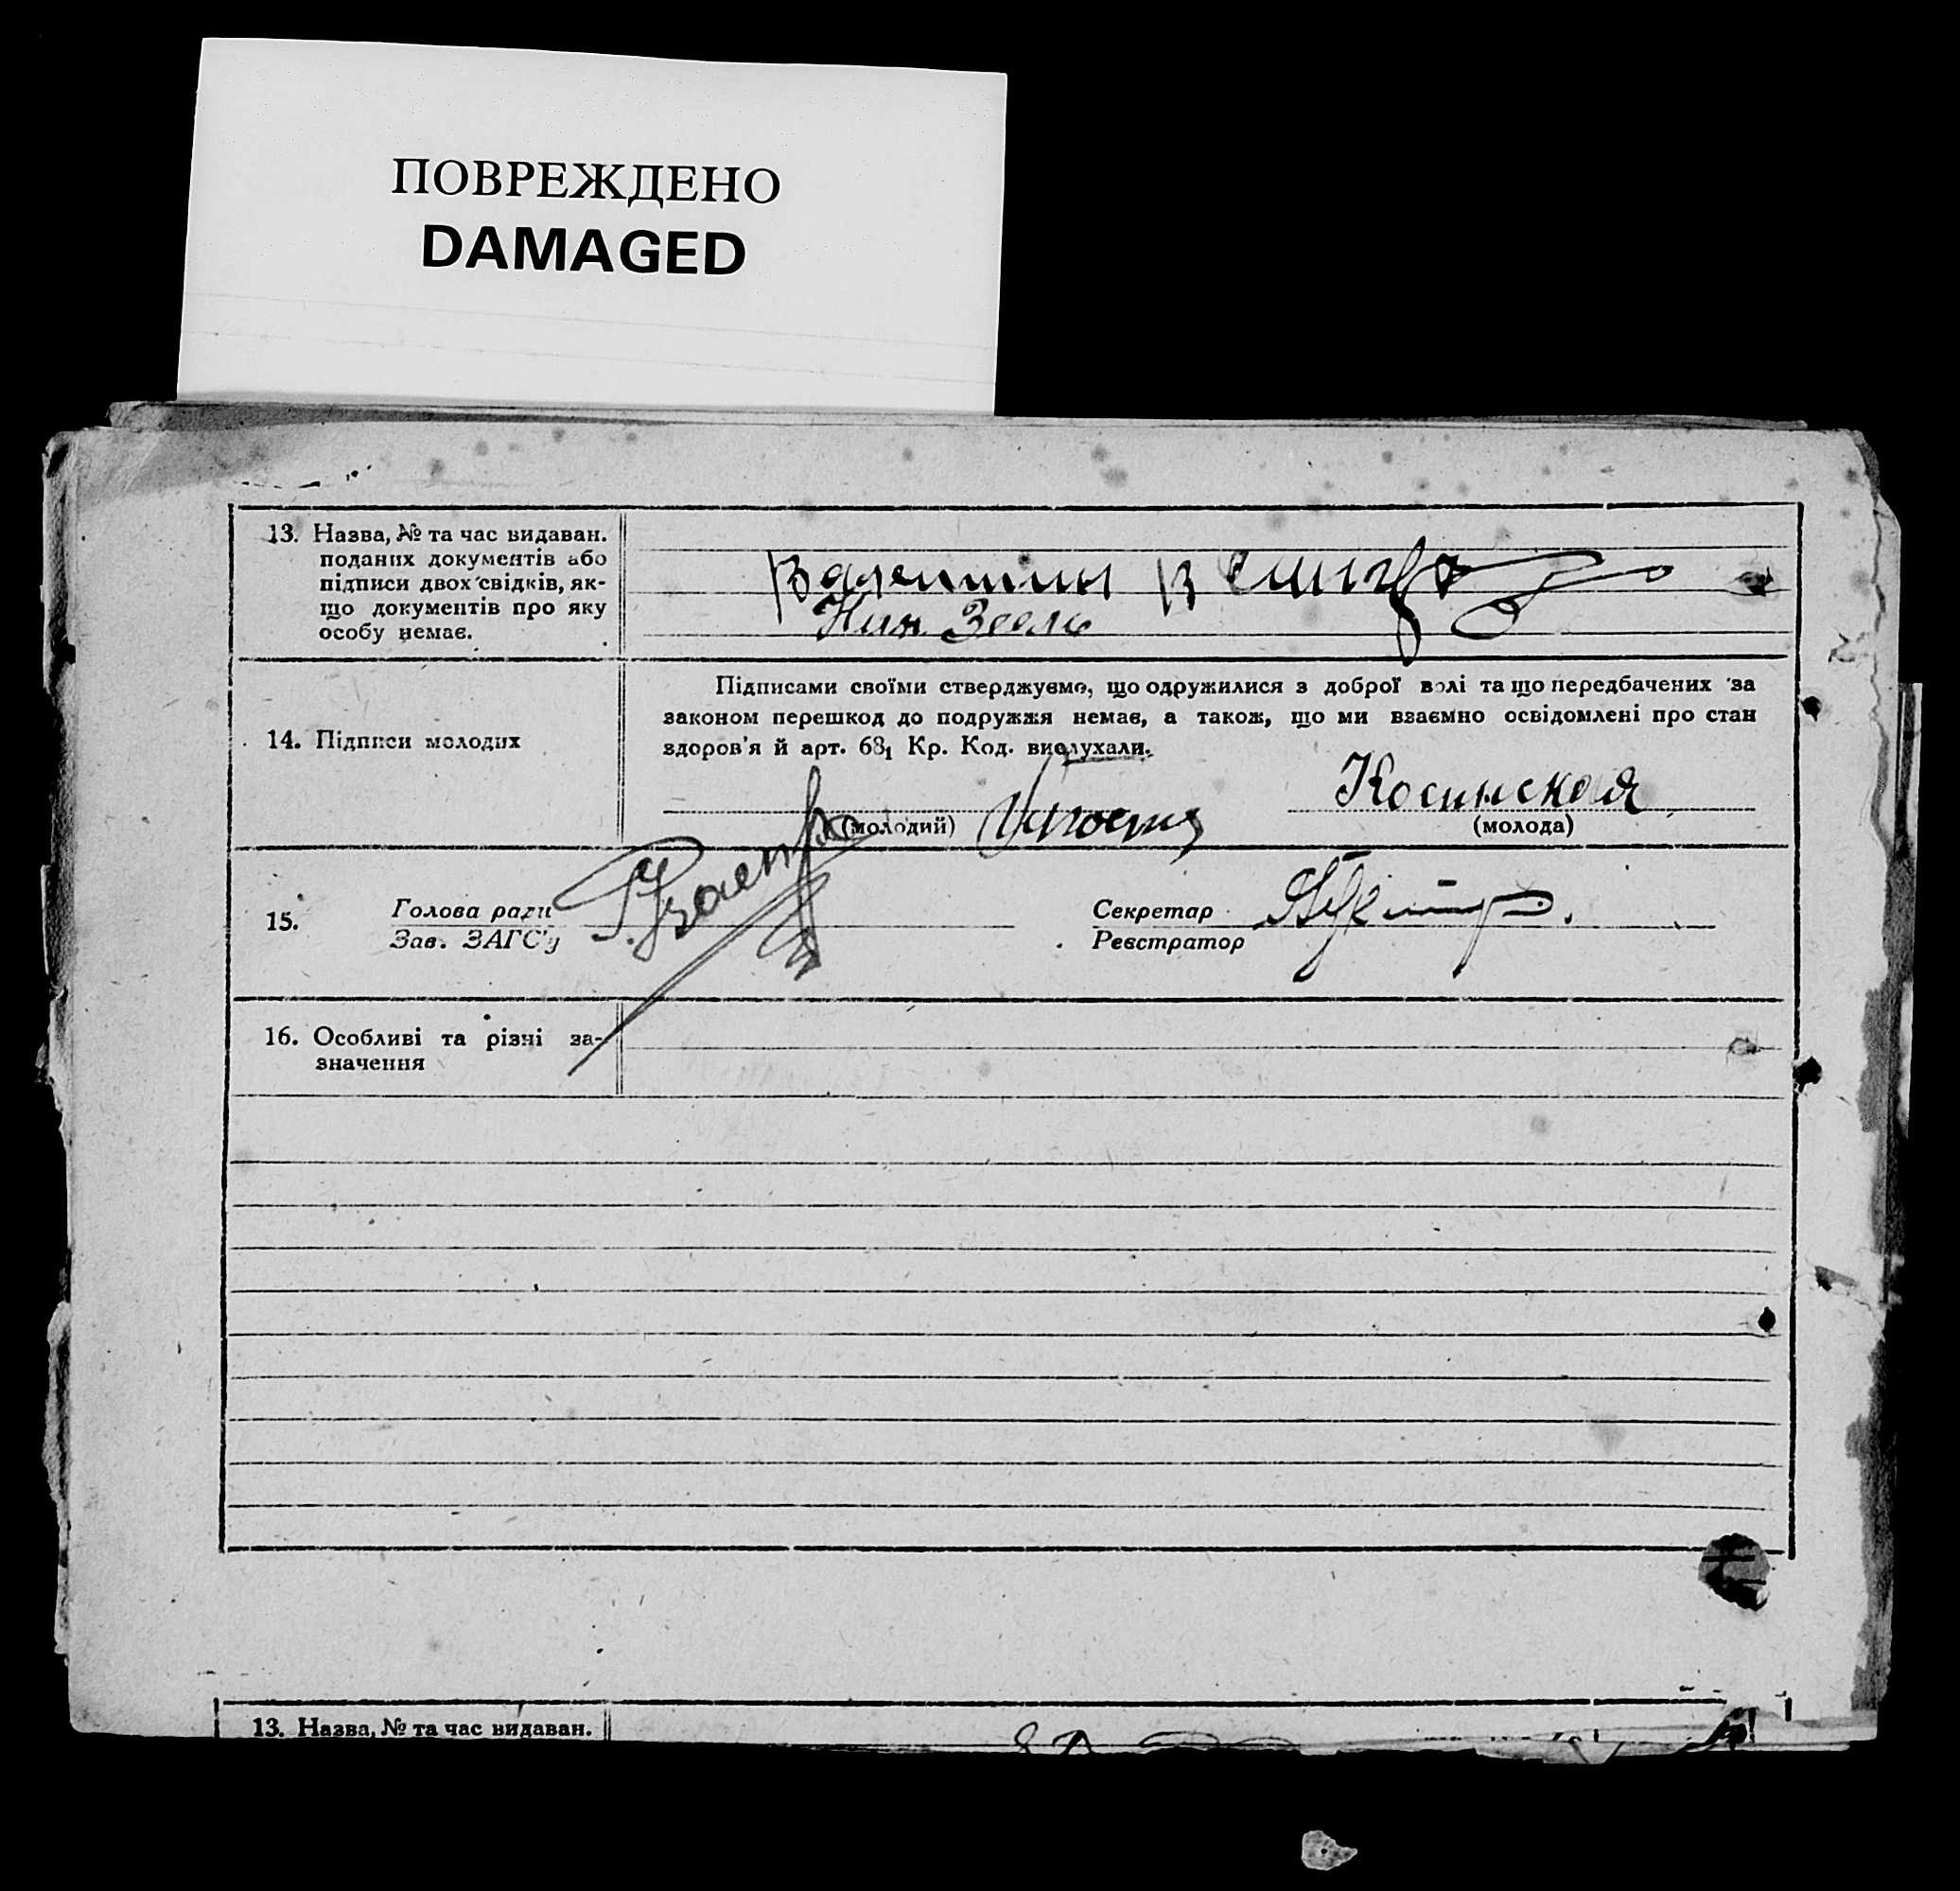 ПОВРЕЖДЕНО
DAMAGED
13. Назва, № та час видаван.
поданих документів або
підписи двох свідків, як-
що документів про яку
особу немає.
Валентин
14. Підписи молодих
Підписами своїми стверджуємо, що одружилися з доброї волі та що передбачених за
законом перешкод до подружжя немає, а також, що ми взаємно освідомлені про стан
здоров'я й арт. 68₁ Кр. Код. вислухали.
Косинская
(молодий)
(молода)
15.
Голова ради
Зав. ЗАГС'у
Секретар
Реєстратор
16. Особливі та різні за-
значення
13. Назва, № та час видаван.